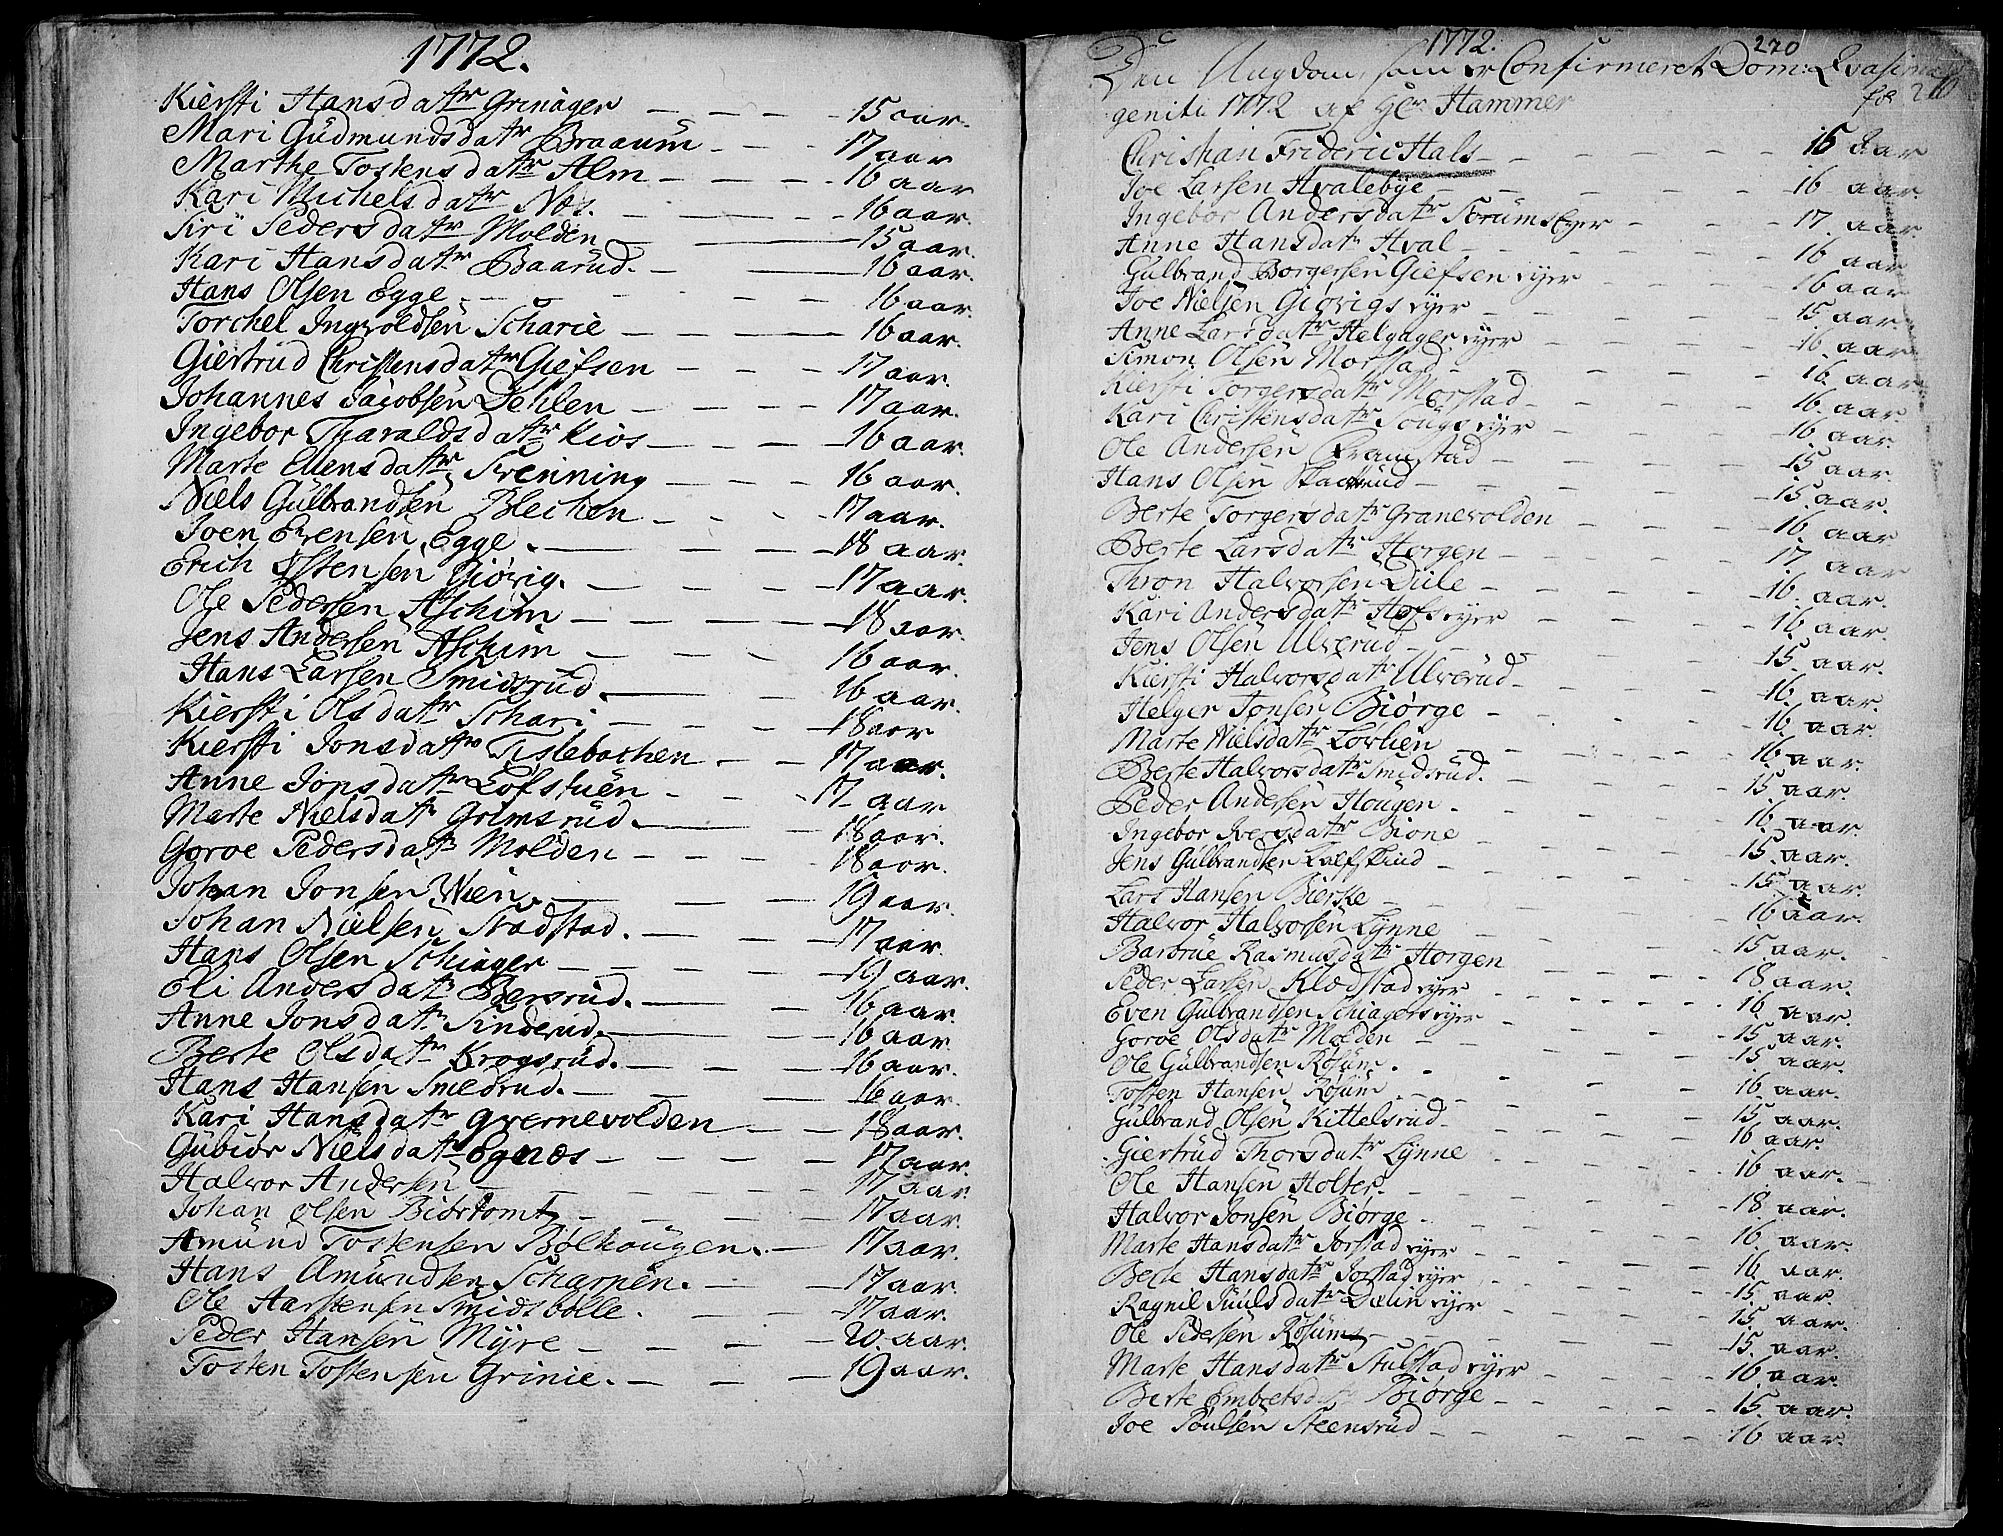 1772.
Kiersti Hansdatr Grinager 15 aar.
Mari Güdmundsdatr Braaum 17 aar
Marthe Tostensdatr Alm 16 aar
Kari Michelsdatr Næs. 16 aar.
Siri Pedersdatr Molden 15 aar.
Kari Hansdatr Baarud. 16 aar.
Hans Olsen Egge. 16 aar.
Torchel Ingvoldsen Scharie 16 aar.
Giertrud Christensdatr Giefsen 17 aar.
Johannes Jacobsen Dehlen 17 aar.
Ingebor Tharaldsdatr Kios 16 aar.
Marte Evensdatr Svenning 16 aar.
Niels Gülbrandsen Blecken 17 aar.
Joen Evensen Egge. 18 aar.
Erich Østensen Giøvig. 17 aar.
Ole Pedersen Aschim 18 aar.
Jens Andersen Aschim 16 aar.
Hans Larsen Smidsrud. 16 aar.
Kiersti Olsdatr Schari 18 aar
Kiersti Jonsdatr Tislebachen 17 aar.
Anne Jonsdatr Lofstuen 17 aar
Marte Nielsdatr Grimsrud. 18 aar.
Goroe Pedersdatr Molden 18 aar.
Johan Jonsen Wien. 19 aar.
Johan Nielsen Nadstad. 17 aar.
Hans Olsen Schiager 19 aar.
Eli Andersdatr Bersrud. 16 aar.
Anne Jonsdatr Sinderud. 16 aar.
Berte Olsdatr Krogsrud. 16 aar.
Hans Hansen Smedrud. 16 aar.
Kari Hansdatr Qvernevolden 18 aar.
Gubiør Nielsdatr Egnæs 17 aar.
Halvor Andersen 17 aar
Johan Olsen Biørtomt 17 aar.
Amund Tostensen Bølhougen. 17 aar.
Hans Amundsen Scharpen. 17 aar.
Ole Aarstensen Smidsbølle. 17 aar.
Peder Hansen Myre 20. aar.
Tosten Tostensen Grinie. 19 aar.
1772. 270
Den Ungdom som er Confirmeret Dom: Qvasimo
geniti 1772 af Hr Hammer
Christian Frideric Hals 15 Aar
Joe Larsen Hvalebye 16 aar.
Ingebor Andersdatr Sorums Eyer 17 aar.
Anne Hansdatr Hval 16 aar
Gulbrand Borgersen Giefsen eyer 16 aar
Joe Nielsen Giøvigs eyer 15 aar.
Anne Larsdatr Helgager eyer 16 aar
Simon Olsen Morstad 16 aar
Kiersti Torgersdatr Morstad 16 aar.
Kari Christensdatr eyer 16 aar
Ole Andersen Framstad 15 aar.
Hans Olsen 15 aar.
Berte Torgersdatr Granevolden 16 aar
Berte Larsdatr Horgen 17 aar
Thron Halvorsen Düle 16 aar.
Kari Andersdatr Hofs eyer 16 aar.
Jens Olsen Ulverud 15 aar.
Kiersti Halvorsdatr Ulverud 16 aar.
Helger Jonsen Biørge 16 aar.
Marte Nielsdatr Lovlien 16 aar.
Berte Halvorsdatr Smidsrud. 15 aar.
Peder Andersen Hougen. 16 aar.
Ingebor Iversdatr Bione 15. aar.
Jens Gulbrandsen 15 aar.
Lars Hansen Bierke 16 aar.
Halvor Halvorsen Lynne 15 aar.
Barbrue Rasmusdatr Horgen 18 aar.
Peder Larsen Klodstad eyer 16 aar.
Even Gulbrandsen Schiagers eyer 15 aar.
Goroe Olsdatr Molden 15 aar.
Ole Gulbrandsen Røsum. 16 aar.
Tosten Hansen Røsum 15 aar.
Gulbrand Olsen Kittelsrud 16 aar.
Giertrud Thorsdatr Lynne 16 aar.
Ole Hansen Holter. 18 aar.
Halvor Jonsen Biørge. 16 aar.
Marte Hansdatr Jorstad eyer 16 aar.
Berte Hansdatr Jorstad eyer 15 aar.
Ragnil Püulsdatr eyer 15 aar.
Ole Pedersen Røsum 15. aar.
Marte Hansdatr eyer 16 aar.
Berte Embretsdatr Biørge 15 aar.
Joe Poulsen Steensrud 16 aar.